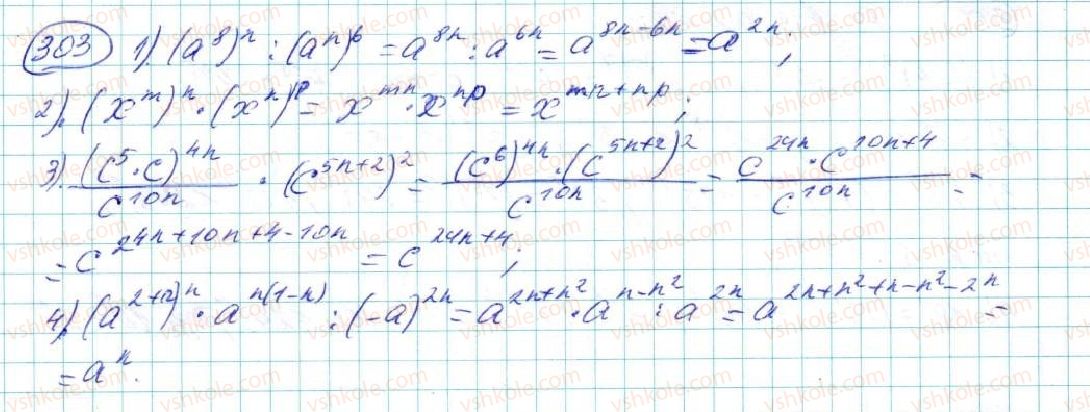 303 1). (a^8)^n : (a^n)^6 = a^{8n} : a^{6n} = a^{8n-6n} = a^{2n};
2). (x^m)^n · (x^n)^p = x^{mn} · x^{np} = x^{mn+np};
3). \frac{(c^5 · c)^{4n}}{c^{10n}} · (c^{5n+2})^2 = \frac{(c^6)^{4n} · (c^{5n+2})^2}{c^{10n}} = \frac{c^{24n} · c^{10n+4}}{c^{10n}} =
= c^{24n+10n+4-10n} = c^{24n+4};
4). (a^{2+n})^n · a^{n(1-n)} : (-a)^{2n} = a^{2n+n^2} · a^{n-n^2} : a^{2n} = a^{2n+n^2+n-n^2-2n} =
= a^n.
vshkole.com